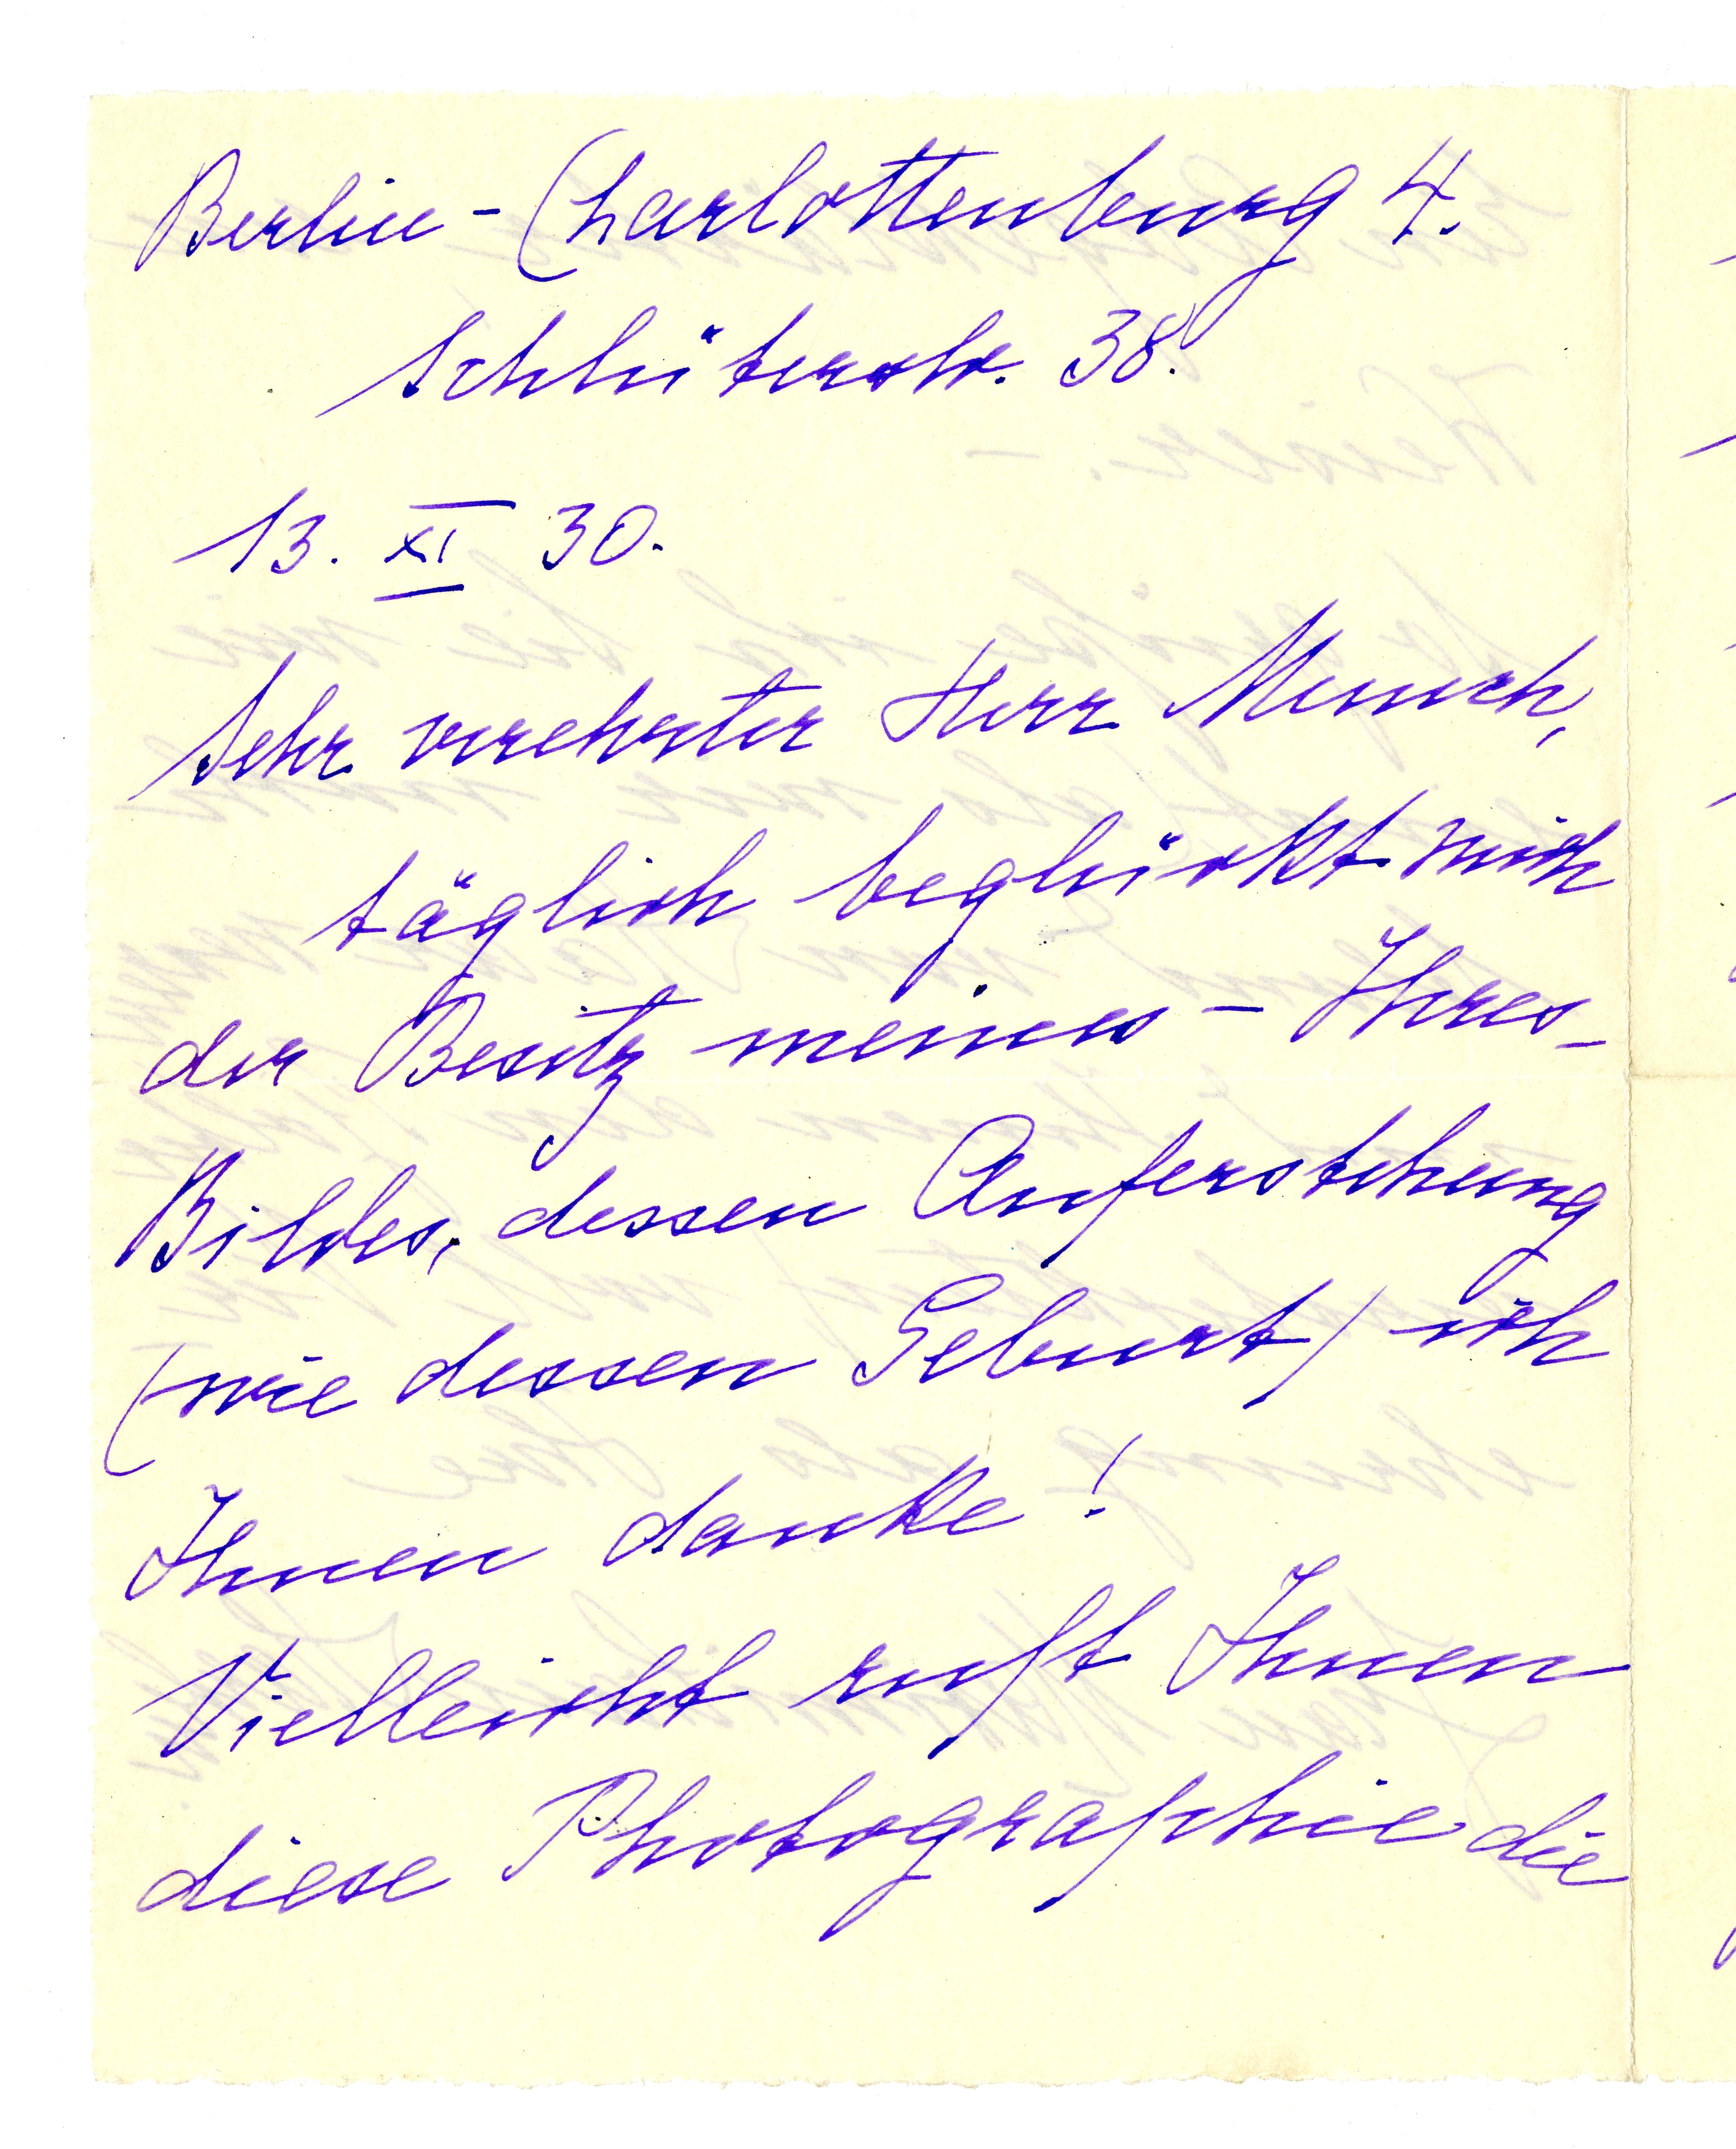 Berlin - Charlottenburg 4.
Schlüterstr. 38.
13. XI 30.
Sehr verehrter Herr Munch,
täglich beglückt mich
der Besitz meines - Ihres -
Bildes, dessen Auferstehung
(wie dessen Geburt) ich
Ihnen danke!
Vielleicht ruft Ihnen
diese Photographie die